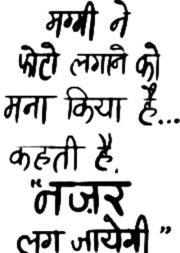 मम्मी ने
फोटो लगाने को
मना किया है...
कहती है.
"नज़र
लग जायेगी"